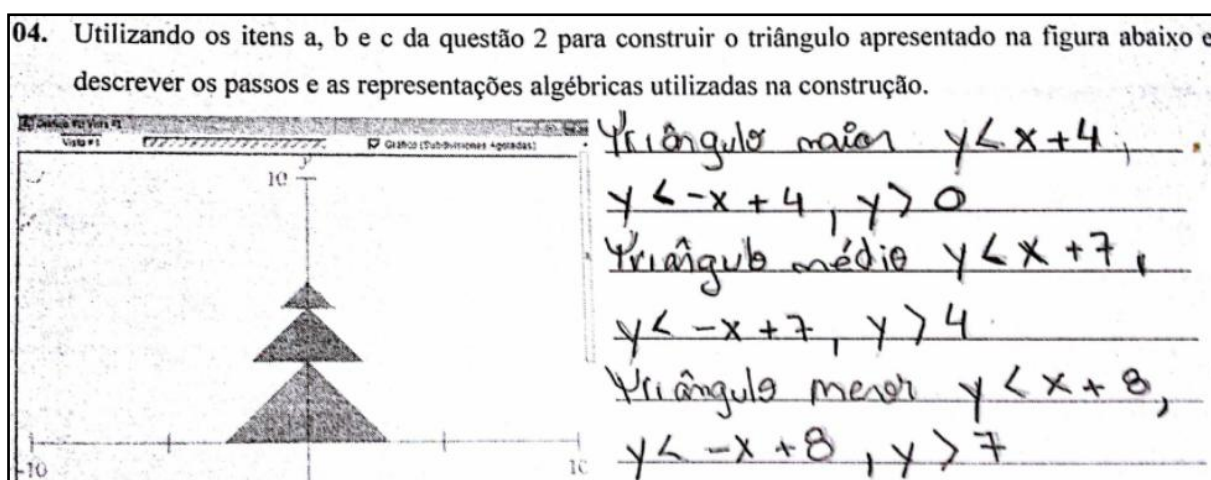 04. Utilizando os itens a, b e c da questão 2 para construir o triângulo apresentado na figura abaixo e
descrever os passos e as representações algébricas utilizadas na construção.
Vista #1
Gráfico (Subdivisiones Agotadas)
y
10
-10
10
Triângulo maior y < x + 4,
y < -x + 4, y > 0
Triângulo médio y < x + 7,
y < -x + 7, y > 4
Triângulo menor y < x + 8,
y < -x + 8, y > 7